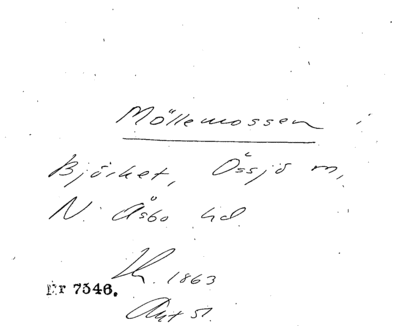 Möllemossen
Björket, Össjö sn,
N. Åsbo hd.
1863
Nr 7346.
Akt 51.